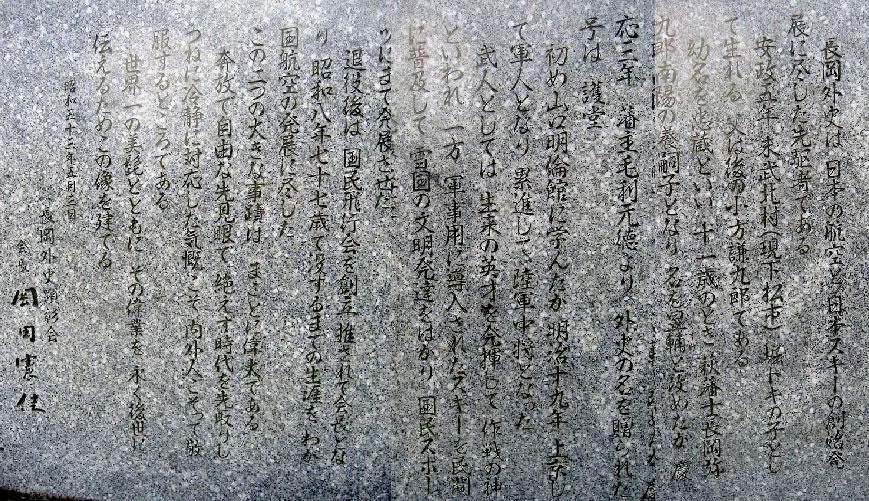 長岡外史は 日本の航空と日本スキーの創始発
展に尽した先駆者である
安政五年 末武北村(現下松市)堀 トキの子とし
て生れる 父は後の小方謙九郎である
幼名を忠蔵といい 十一歳のとき 萩藩士長岡弥
九郎南陽の養嗣子となり 名を昱輔と改めたが 慶
応三年 藩主毛利元徳より 外史の名を贈られた
号は 護堂
初め山口明倫館に学んだが 明治十九年 上京し
て軍人となり 累進して 陸軍中将となった
武人としては 生来の英才を発揮して 作戦の神
といわれ 一方 軍事用に導入されたスキーを民間
に普及して 雪国の文明発達をはかり 国民スポー
ツにまで発展させた
退役後は 国民飛行会を創立 推されて会長とな
り 昭和八年七十七歳で没するまでの生涯を わが
国航空の発展に尽した
この二つの大きな事蹟は まことに偉大である
奔放で自由な先見眼で 絶えず時代を先取りし
つねに冷静に対応した気慨こそ 内外人こぞって敬
服するところである
世界一の美髭とともに その偉業を 永く後世に
伝えるためこの像を建てる
昭和五十二年五月三日
長岡外史顕彰会
会長 岡田憲佳